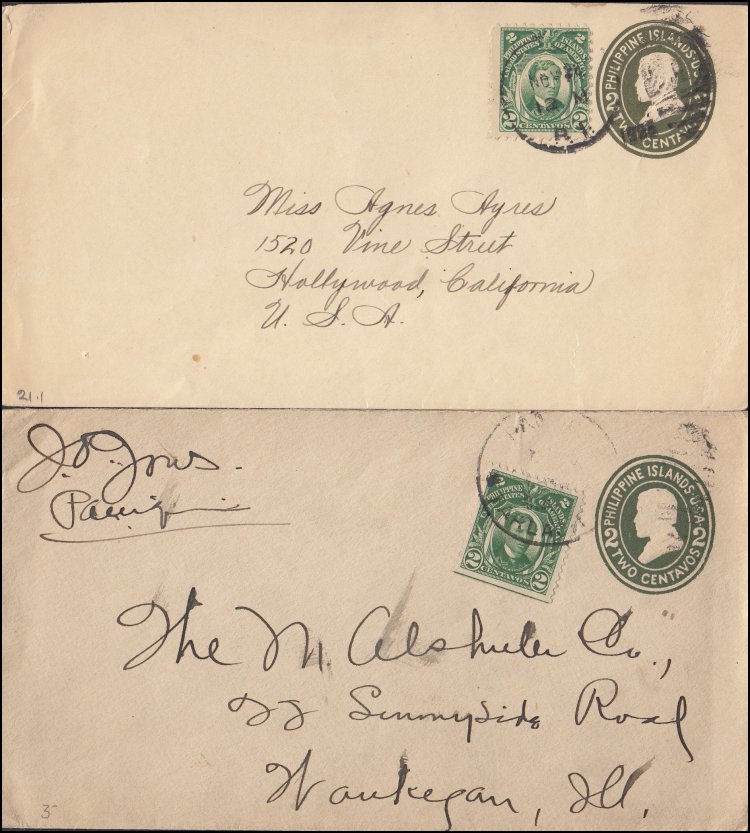 2 PHILIPPINE ISLANDS 2
UNITED STATES OF AMERICA
2 CENTAVOS 2
PHILIPPINE ISLANDS·USA
2 2
TWO CENTAVOS
Miss Agnes Ayres
1520 Vine Street
Hollywood, California
U. S. A.
21.1
J. O. Jones.
PHILIPPINE ISLANDS
UNITED STATES OF AMERICA
2 CENTAVOS 2
PHILIPPINE ISLANDS·USA
2 2
TWO CENTAVOS
The M. Alshuler Co.,
22 Sunnyside Road
Waukegan, Ill.
3